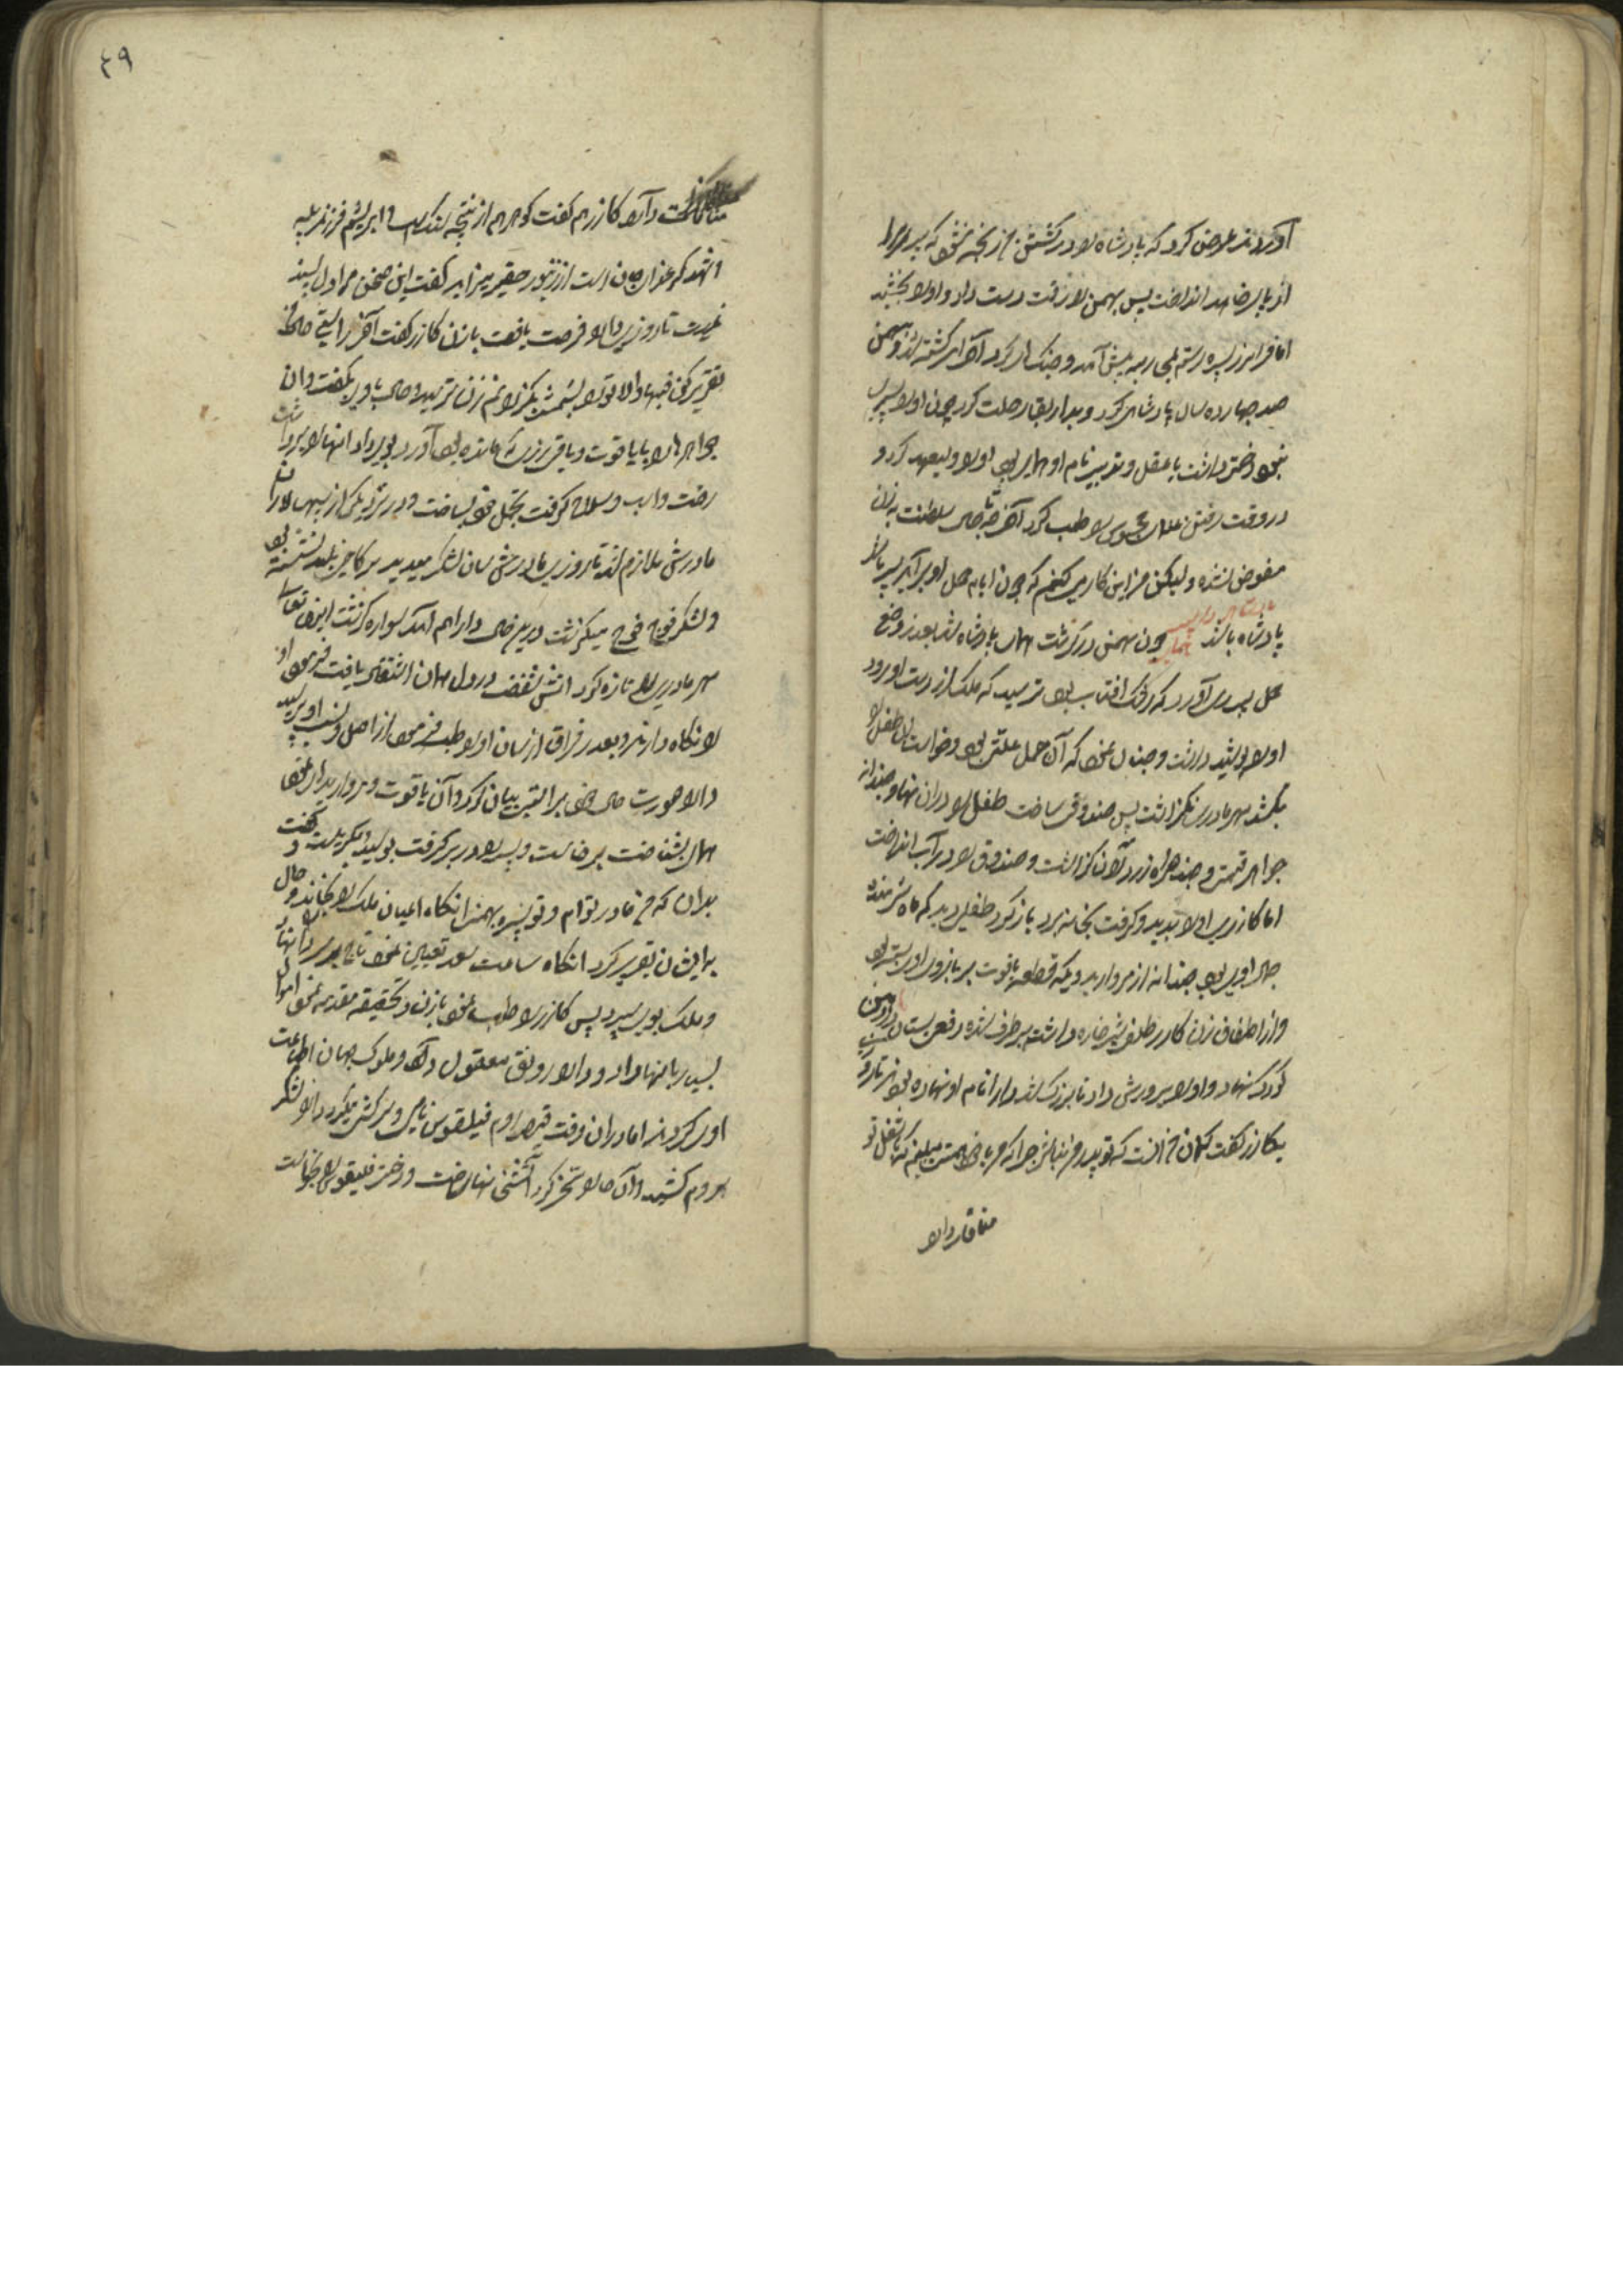 آوردند عرض کرد که پادشاه را در کشتن من رنجه نشود که پیر مرا
از پا بر خواهد انداخت پس بهمن را رقت دست داد و او را بخشید
اما فرامرز پسر رستم پیش آمد و جنگ کرد آخر کشته شد و بهمن
صد چهارده سال پادشاهی کرد و بدار بقا رحلت کرد چون او را پسری
نبود دختر داشت با عقل و تدبیر نام او همای بود او را ولیعهد کرد و
در وقت رفتن را طلب کرد سلطنت به زنان
مفوض نشده و لیکن من این کار می کنم که چون ایام حمل او بر آید پسر باشد
پادشاه باشد چون بهمن درگذشت همای پادشاه شد بعد از وضع
حمل پسری آورد که رشک آفتاب بود ترسید که ملک از دست او رود
او را پوشیده داشت و چنان نمود که آن حمل علتی بود و خواست آن طفل را
بکشد مهر مادری نگذاشت پس صندوقی ساخت طفل را در آن نهاد و چند دانه
جواهر قیمتی و چند هزار زر در آن گذاشت و صندوق را در آب انداخت
اما کازری او را بدید و گرفت بخانه برد باز کرد طفلی دید که ماه شرمنده
جمال اوی بود چند دانه از مروارید و یک قطعه یاقوت بر بازوی او بسته بود
و از اتفاق زن کازر طفلی شیرخواره داشت بر طرف شده بود پستان در دهن
کودک نهاد و او را پرورش داد تا بزرگ شد دارا نام او نهاده بودند تا روزی
بکازر گفت گمان من آنست که تو پدر من نباشی چرا که مرا با خود همت بلند که شغل تو
منافات دارد
٤٩
منافات دارد کازر هم گفت گوهر هم از نتیجه سنگ است و ابریشم فرزند پیله
و شهد که غذای جان است از زنبور حقیر میزاید گفت این سخن مرا دل پسند
نیست تا روزی دارا فرصت یافت با زن کازر گفت آخر راستی حال مرا
تقریر کن و الا ترا بشمشیر بگذرانم زن ترسید و حال با وی بگفت و آن
جواهرها را با یاقوت و باقی زری که مانده بود آورد بوی داد آنها را برداشت
رخت و اسب و سلاح گرفت تجمل خود ساخت و در نزد یکی از سپهسالاران
مادرش ملازم شد تا روزی مادرش سان لشکر میدید بر کاخ بلند نشسته بود
و لشکر فوج فوج میگذشت در این حال دارا هم آمد سواره گذشت ایزد تعالی
مهر مادری را تازه کرد آتش شفقت در دل همای اشتعال یافت فرمود او
را نگاه دارند و بعد از فراق از سان او را طلب فرمود از اصل و نسب او پرسید
دارا صورت حال خود براستی بیان کرد و آن یاقوت و مروارید را نمود
همای بشناخت برخاست و پسر را در بر گرفت بوسید و بگریست و گفت
بدان که من مادر توام و تو پسر بهمن آنگاه اعیان ملک را بخواند و حال
به ایشان تقریر کرد آنگاه ساعت سعد تعیین نمود تاج بر سر دارا نهاد
و ملک بوی سپرد پس کازر را طلب نمود با زن و تحقیق مقدمه نمود اموال
بسیار بآنها داد و دارا رونق معقول داد و ملوک جهان اطاعت
او کردند اما در آن وقت قیصر روم فیلقوس نامی بود سرکشی میکرد دارا لشکر
بروم کشید و آن جا را مسخر کرد آشتی نهاد ساخت و دختر فیلقوس را بخواست